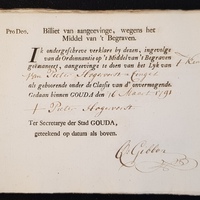 Pro Deo. Billiet van aangeevinge, wegens het
Middel van 't Begraven.
Ik ondergeschreve verklare by desen, ingevolge
van de Ordonnantie op 't Middel van 't Begraven
geëmaneert, aangeevinge te doen van het Lyk van
Van Pieter Hogevorst
als gehoorende onder de Classis van d' onvermogende.
Gedaan binnen GOUDA den 16 Maart 1791
Pieter Hogevorst
Ter Secretarye der Stad GOUDA,
geteekent op datum als boven.